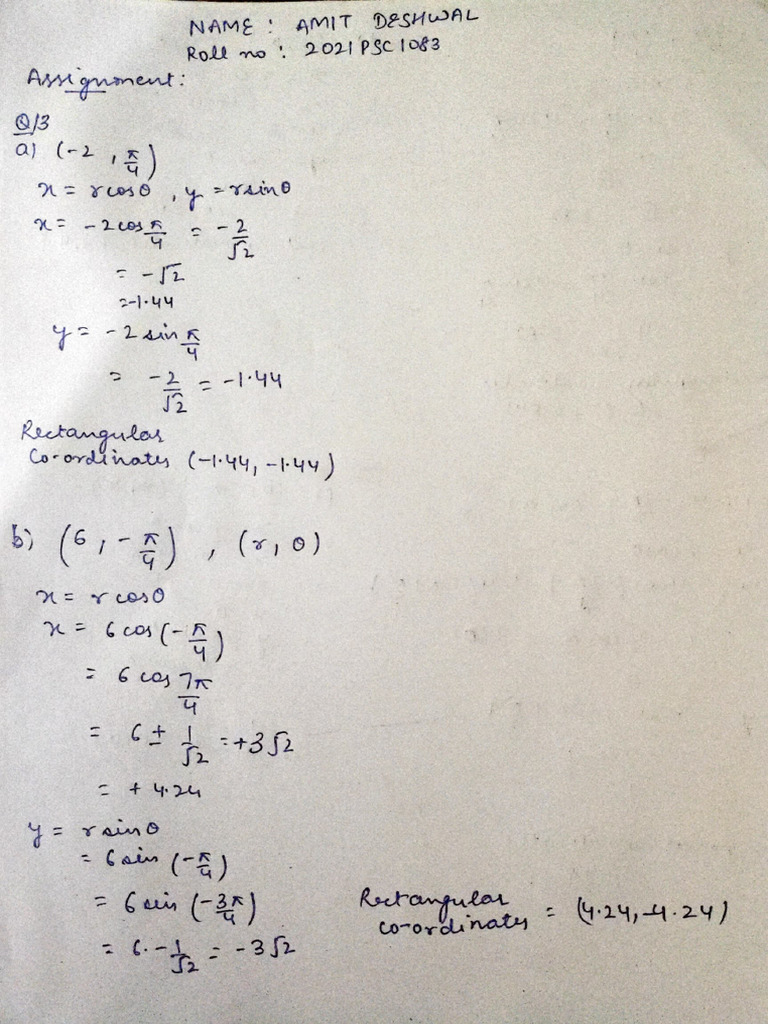 NAME : AMIT DESHWAL
Roll no : 2021PSC1083
Assignment:
Q/3
a) (-2 , π/4)
x = rcosθ , y = rsinθ
x = -2cos π/4 = -2/√2
= -√2
=-1.44
y = -2 sin π/4
= -2/√2 = -1.44
Rectangular
Co-ordinates (-1.44, -1.44)
b) (6, -π/4) , (r, θ)
x = r cosθ
x = 6 cos (-π/4)
= 6 cos 7π/4
= 6 ± 1/√2 = +3√2
= + 4.24
y = r sinθ
= 6 sin (-π/4)
= 6 sin (-3π/4)
= 6. -1/√2 = -3√2
Rectangular
co-ordinates = (4.24, -4.24)